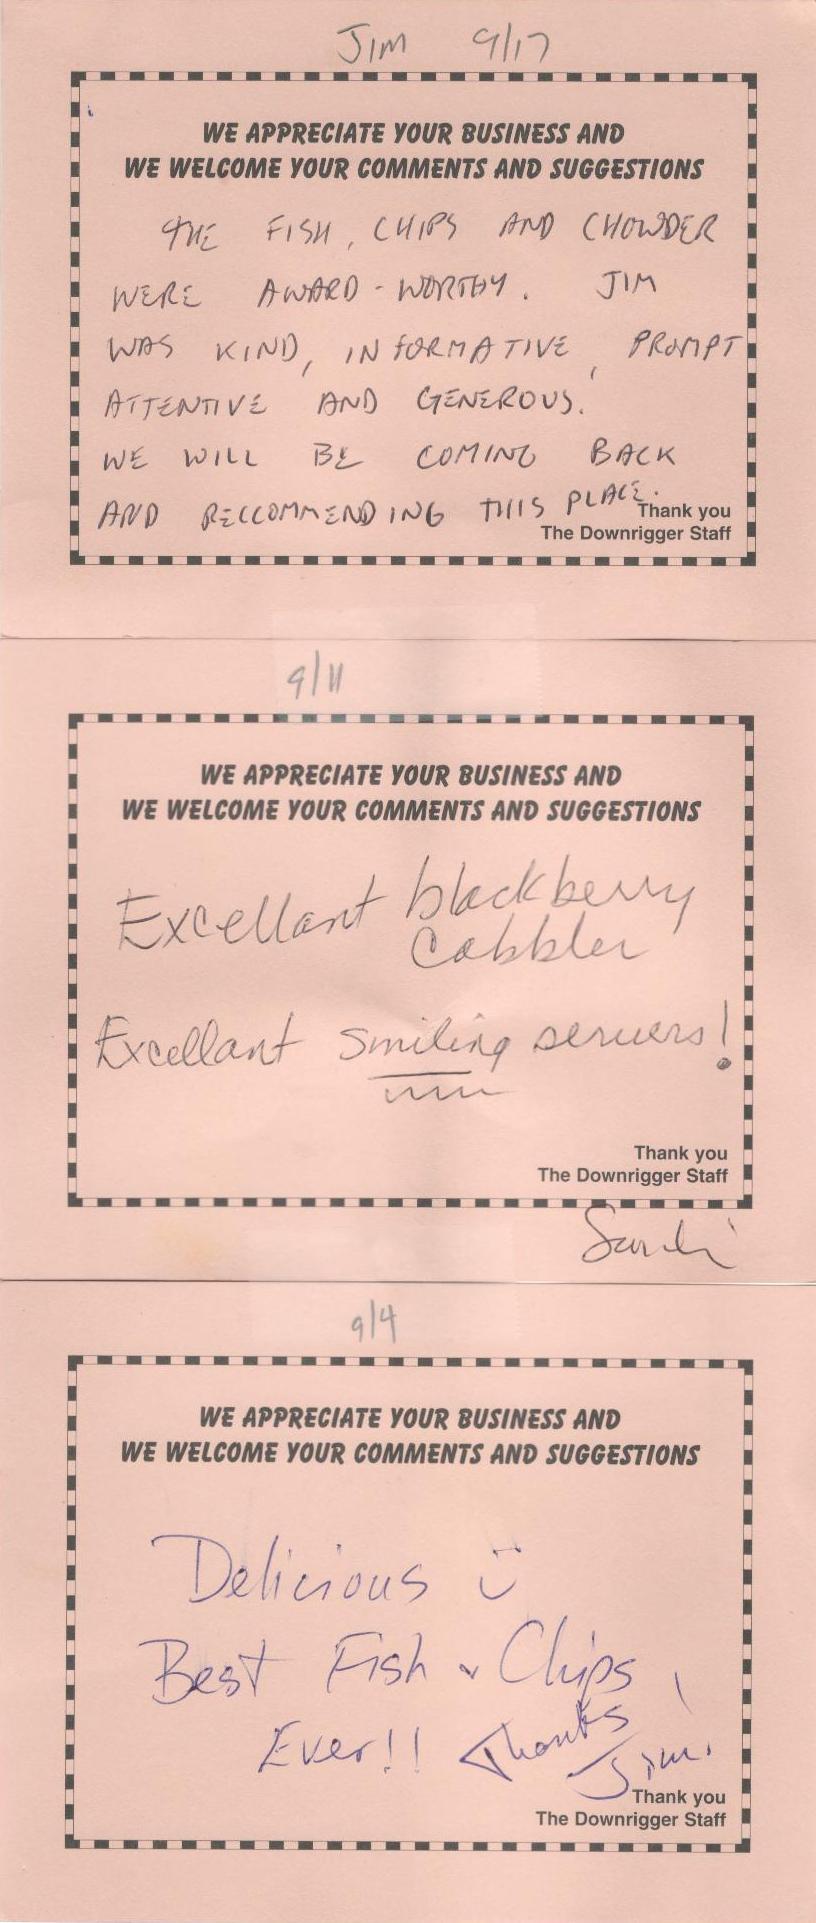 JIM 9/17
WE APPRECIATE YOUR BUSINESS AND
WE WELCOME YOUR COMMENTS AND SUGGESTIONS
THE FISH, CHIPS AND CHOWDER
WERE AWARD-WORTHY. JIM
WAS KIND, INFORMATIVE, PROMPT
ATTENTIVE AND GENEROUS.
WE WILL BE COMING BACK
AND RECCOMMENDING THIS PLACE.
Thank you
The Downrigger Staff
9/11
WE APPRECIATE YOUR BUSINESS AND
WE WELCOME YOUR COMMENTS AND SUGGESTIONS
Excellant blackberry
Cobbler
Excellant smiling servers!
Thank you
The Downrigger Staff
Sandi
9/4
WE APPRECIATE YOUR BUSINESS AND
WE WELCOME YOUR COMMENTS AND SUGGESTIONS
Delicious
Best Fish & Chips
Ever!! Thanks
Jim!
Thank you
The Downrigger Staff